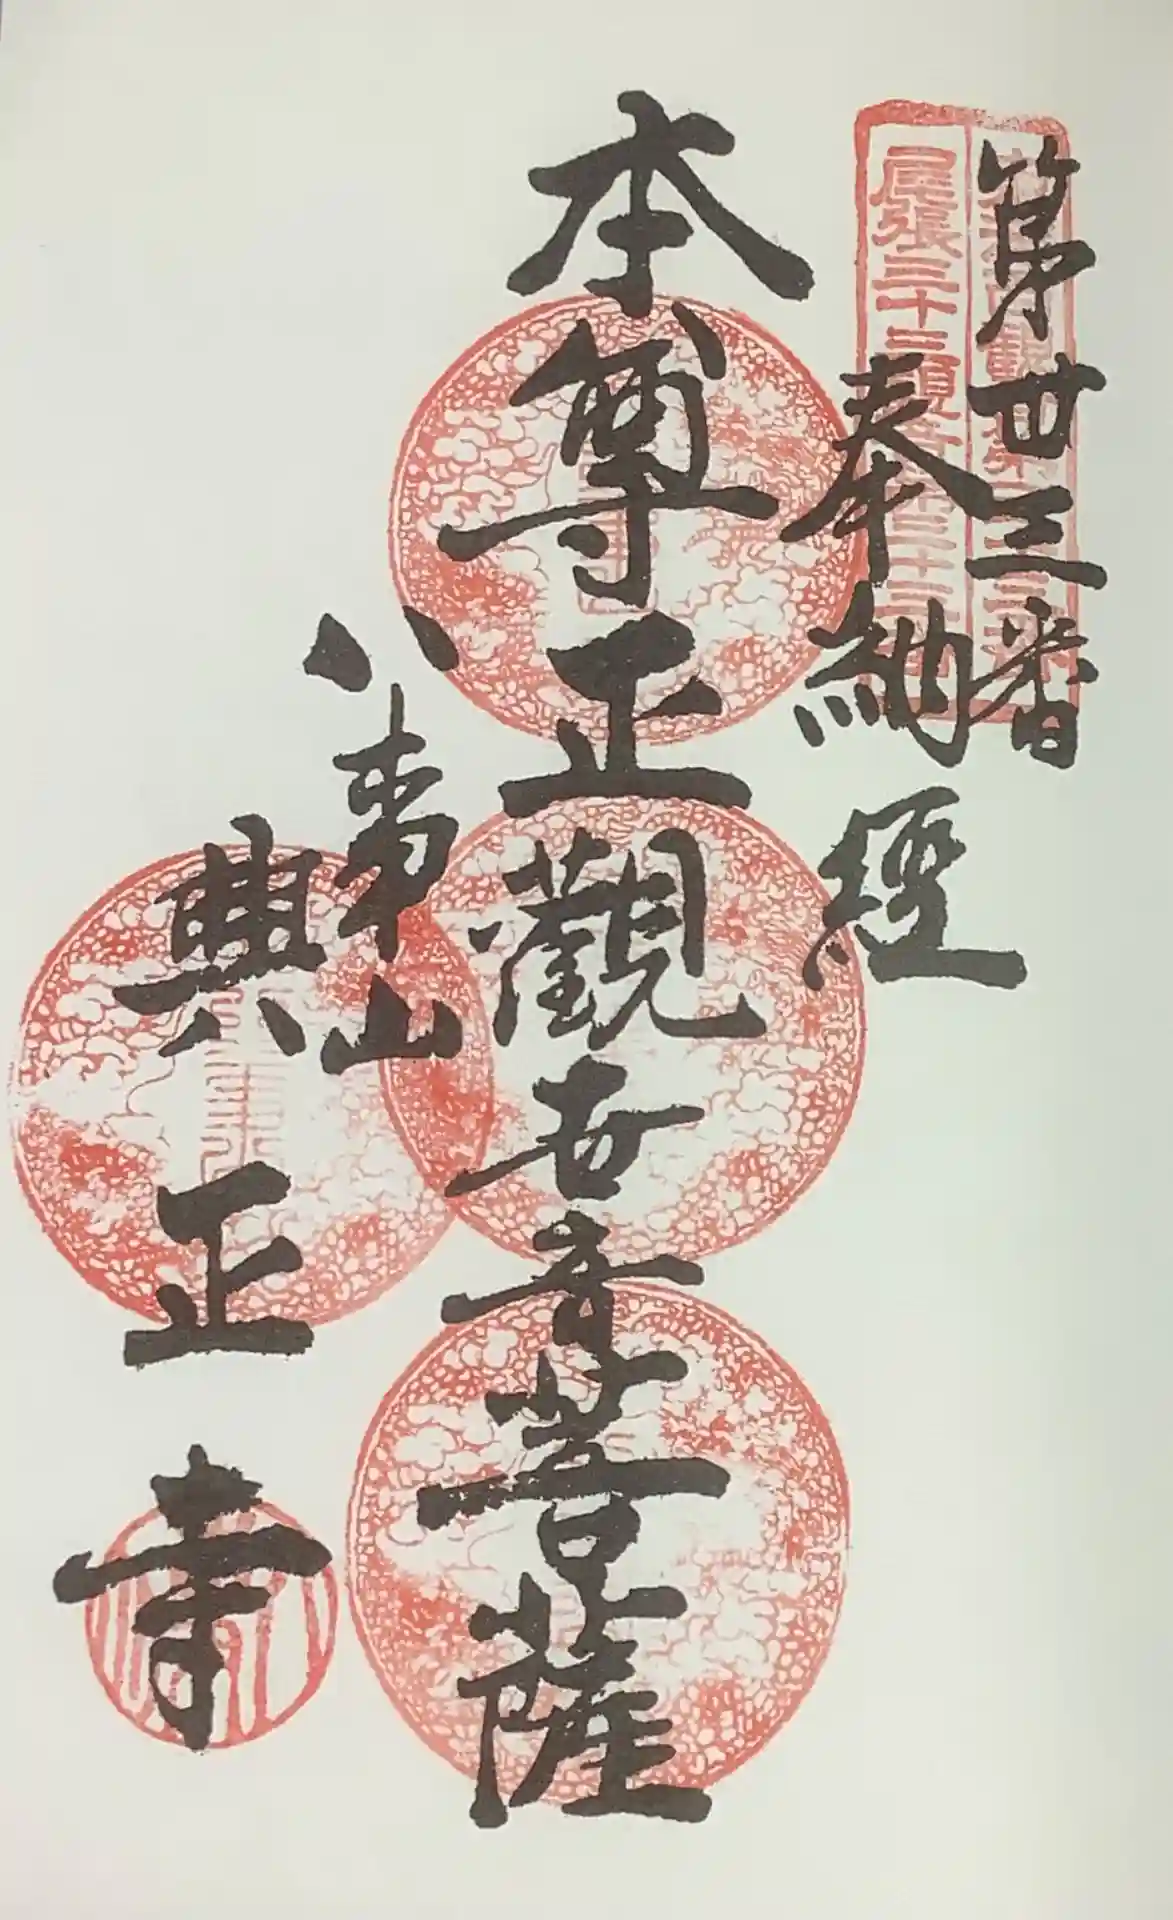 第卅三番
奉納經
本尊正觀世音菩薩
八事山
興正寺
尾張三十三観音第三十三番